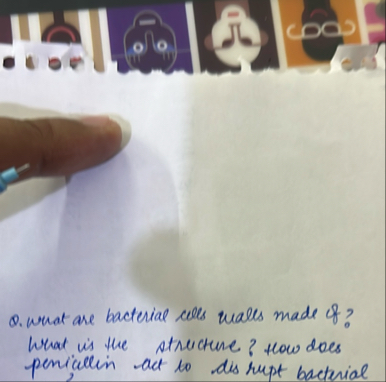 Q. What are bacterial cells walls made of?
What is the structure? How does
penicillin act to disrupt bacterial
?